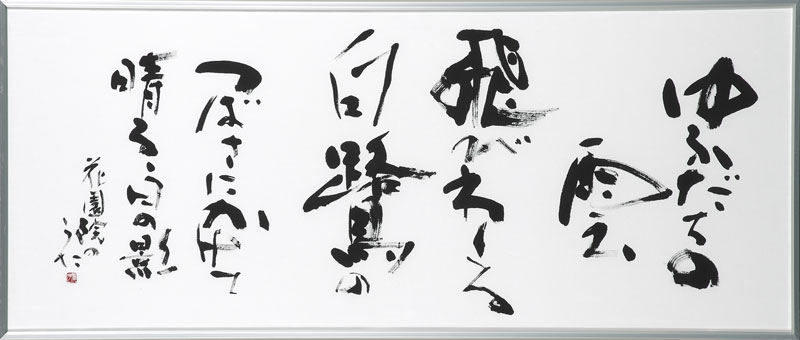 ゆふだちの
雲
飛びわくる
白鷺の
つばさにかけて
晴るゝ日の影
花園院の
うた